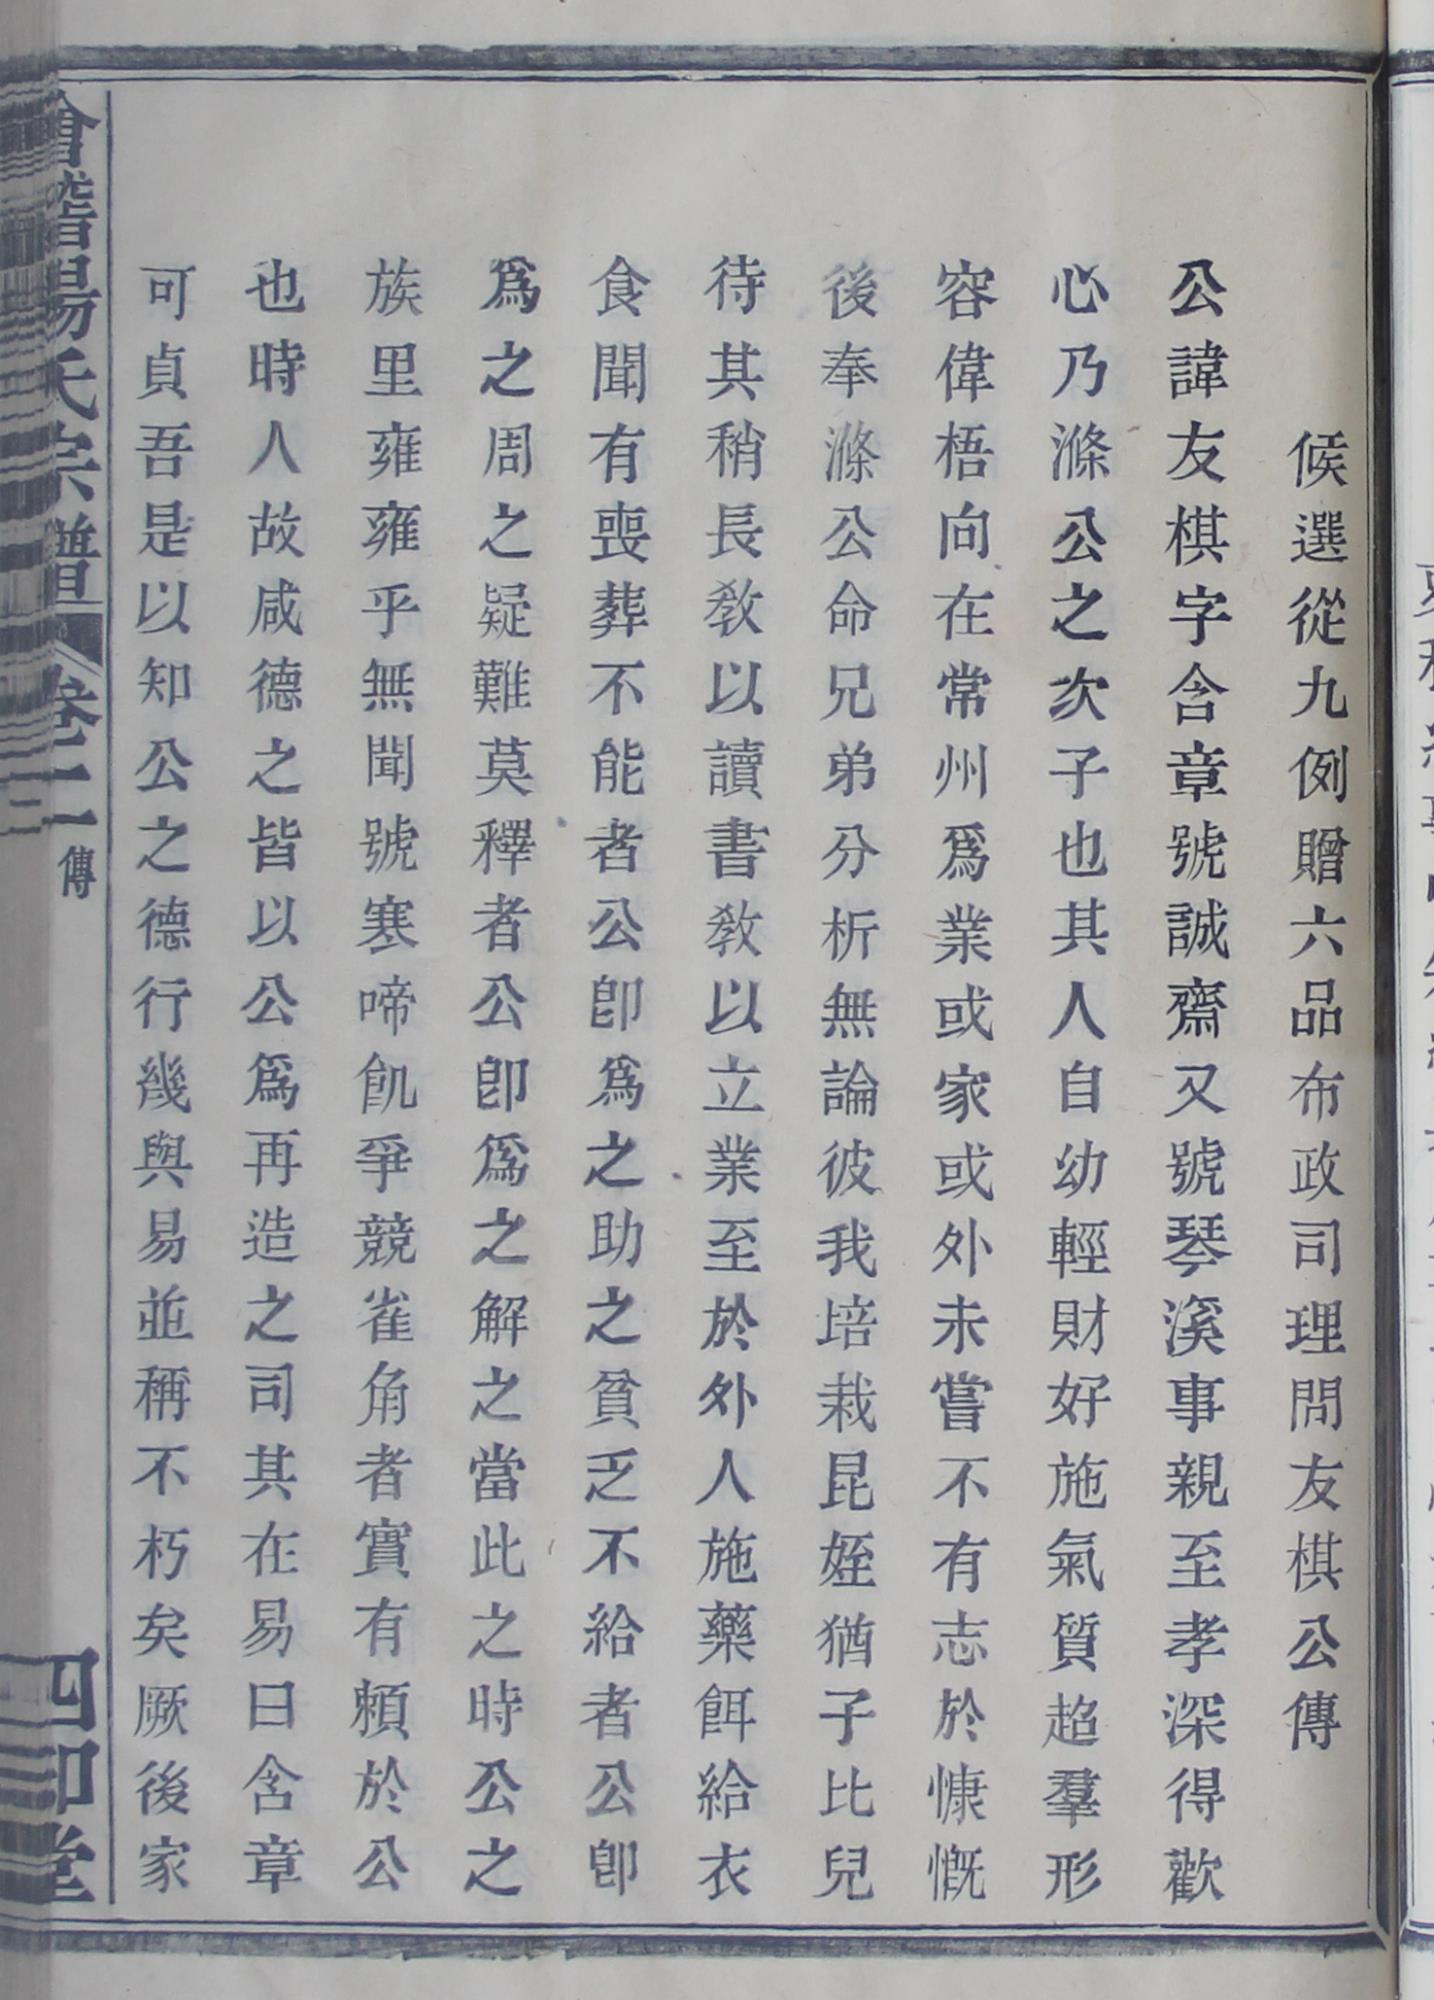 候選從九例贈六品布政司理問友棋公傳
公諱友棋字含章號誠齋又號琴溪事親至孝深得歡
心乃滌公之次子也其人自幼輕財好施氣質超羣形
容偉梧向在常州爲業或家或外未嘗不有志於慷慨
後奉滌公命兄弟分析無論彼我培栽昆姪猶子比兒
待其稍長教以讀書教以立業至於外人施藥餌給衣
食聞有喪葬不能者公卽爲之助之貧乏不給者公卽
爲之周之疑難莫釋者公卽爲之解之當此之時公之
族里雍雍乎無聞號寒啼飢爭競雀角者實有賴於公
也時人故咸德之皆以公爲再造之司其在易曰含章
可貞吾是以知公之德行幾與易並稱不朽矣厥後家
會稽楊氏宗譜 卷二 傳 四知堂